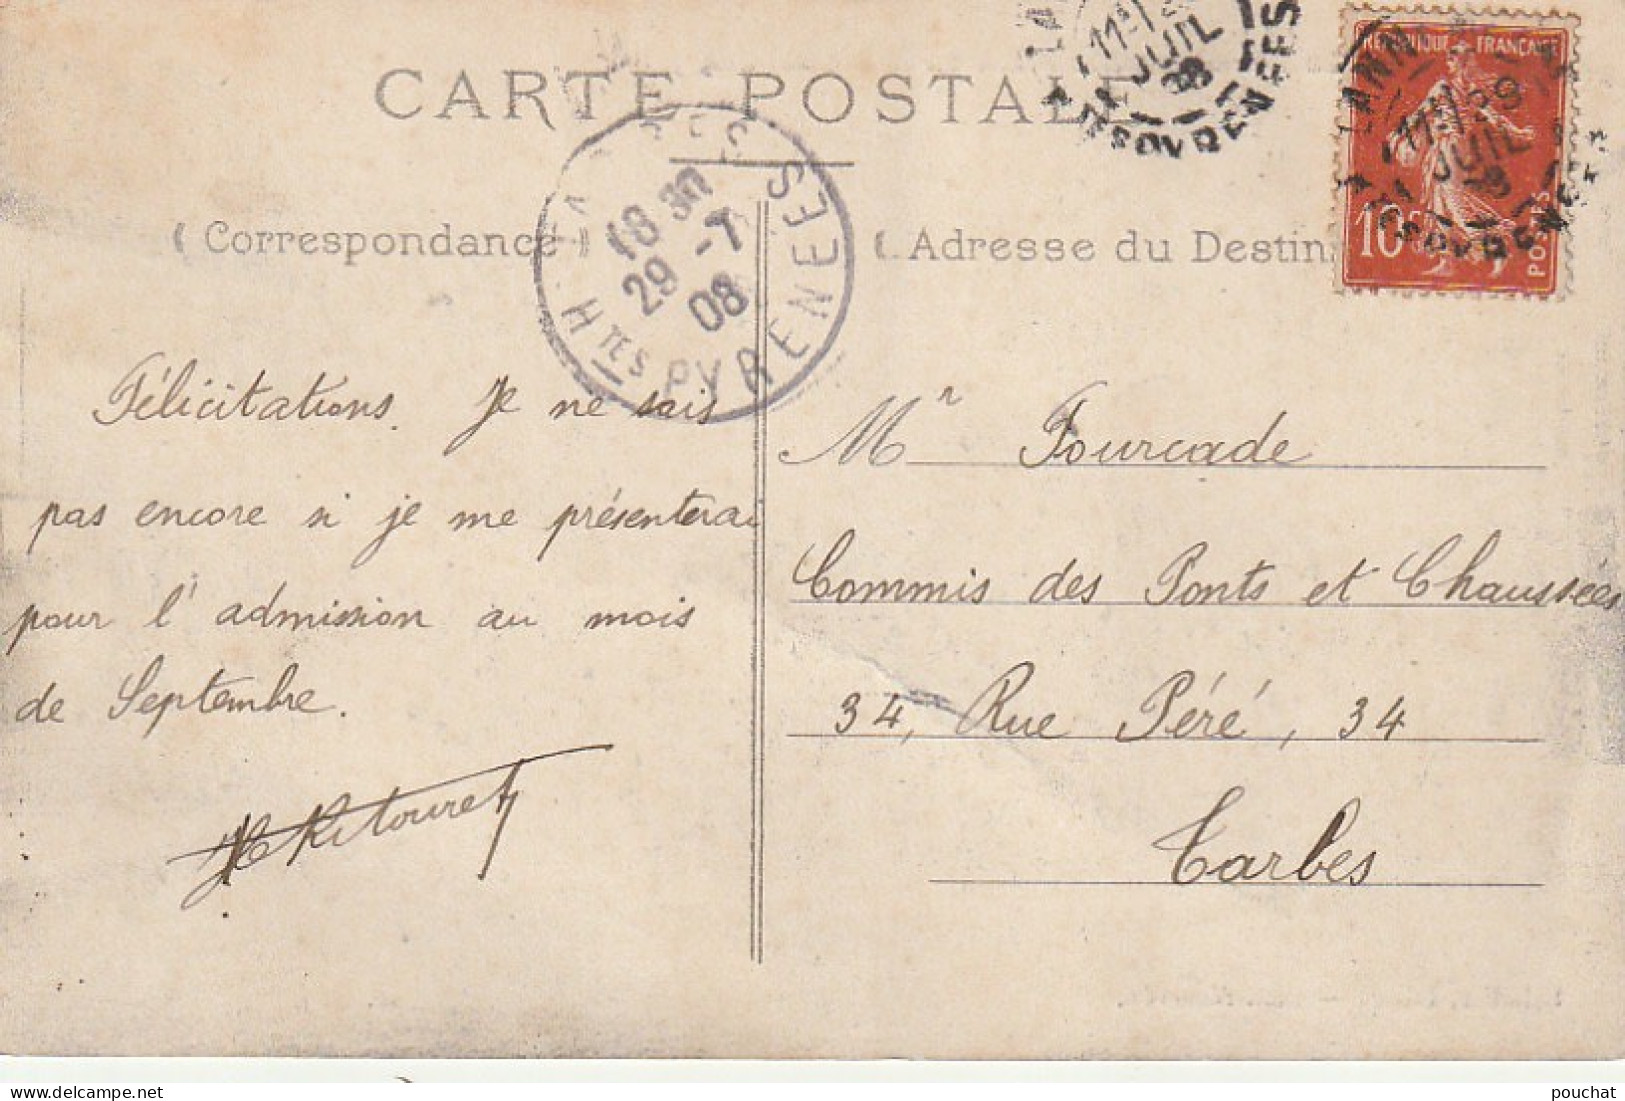 CARTE POSTALE
( Correspondance )
( Adresse du Destin
REPUBLIQUE FRANÇAISE
10
18 30
29 -7
08
Htes PYRENEES
11
JUIL
Félicitations. Je ne sais
pas encore si je me présenterai
pour l'admission au mois
de Septembre.
Mr Fourcade
Commis des Ponts et Chaussées
34, Rue Péré, 34
Tarbes
pouchat